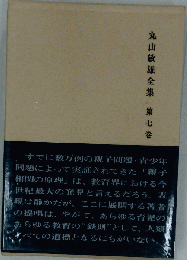 丸山敏雄全集 第七巻
すでに数万例の親子問題・青少年
問題によって実証されてきた「親子
の原理」は、教育界における今
世紀最大の発見と言えるだろう。
は静かだが、ここに展開する著者
の提唱は、やがて、あらゆる
あらゆる教育の「鉄則」として、人類
すべての道標となるにちがいない。